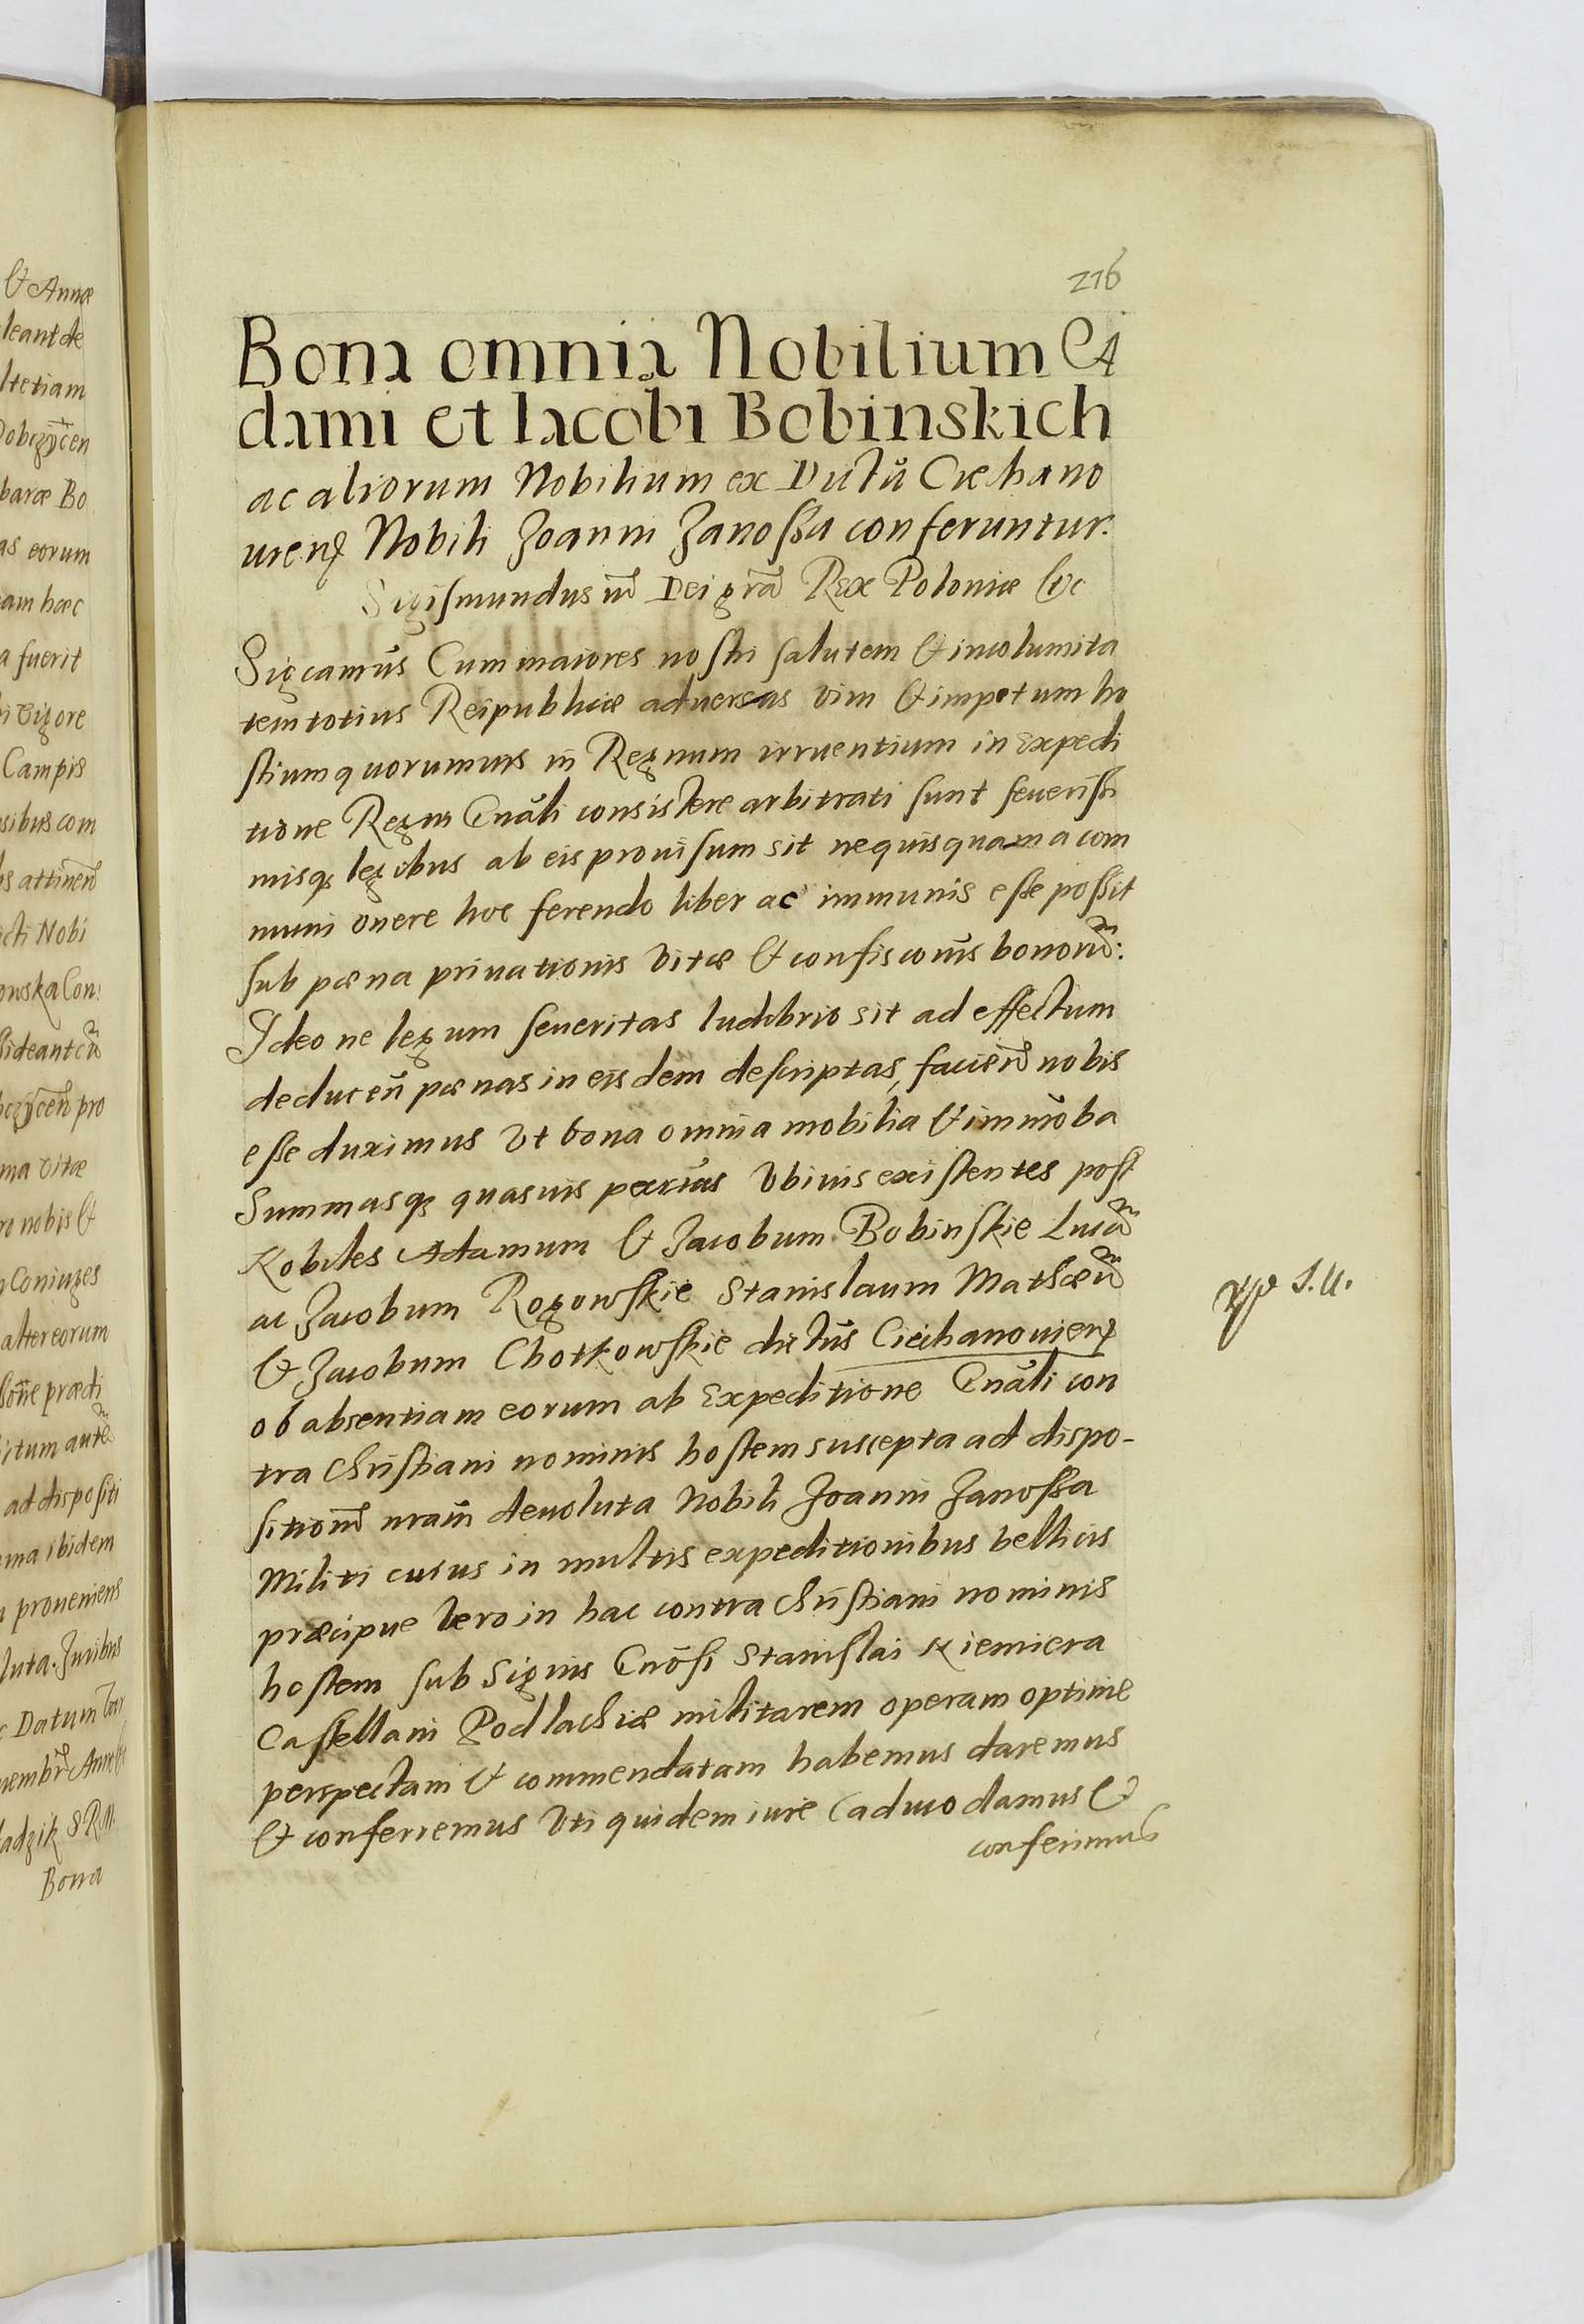 & Annæ
leant de
ltetiam
Dobczÿcen
baræ Bo
as eorum
am hæc
a fuerit
i vigore
Campis
sibus com
s attinen̄
cti Nobi
owska Con:
ideant cū
bczÿcen̄ pro
ma vitæ
ro nobis &
Coniuges
alter eorum
præcti
ictum autē
ad dispositi
ma ibidem
proueniens
luta. Juribus
Datum
Bona
216
Bona omnia Nobilium A
dami et Iacobi Bobinskich
ac aliorum Nobilium ex Dūctū Ciechano
uienꝭ Nobili Joanni Janossa conferuntur.
Sigismundus iii̅ Dei grã Rex Poloniæ &c
Sigcamūs Cum maiores nostri salutem & incolumita
tem totius Reipublicæ aduersus vim & impetum ho
stium quorumuis in Regnum irruentium in expedi
tione Regni Gnāli consistere arbitrati sunt seueriſsi
misqꝫ legibus ab eis prouisum sit ne quisquam a com
muni onere hoc ferendo liber ac immunis esse poßit
sub pæna priuationis vitæ & confiscoūis bonorū:
Ideo ne legum seueritas ludibrio sit ad effectum
deducen̄ pænas in eisdem descriptas, facien̄ nobis
eße duximus vt bona omnia mobilia & immōba
Summasqꝫ quasuis pecuīas vbiuis existentes post
Nobiles Adamum & Jacobum Bobinskie Lucā
ac Jacobum Rogowskie Stanislaum Mathæū
& Jacobum Chotkowskie dictūs Ciechanouienꝭ
ob absentiam eorum ab expeditione Gnāli con
tra christiani nominis hostem suscepta ad dispo-
sitionē nrām deuoluta Nobili Joanni Janoßa
Militi cuius in multis expeditionibus bellicis
præcipue vero in hac contra christiani nominis
hostem sub signis Gnōsi Stanislai Niemiera
Castellani Podlachiæ militarem operam optime
perspectam & commendatam habemus daremus
& conferremus vti quidem iure caduco damus &
conferimus
S.U.